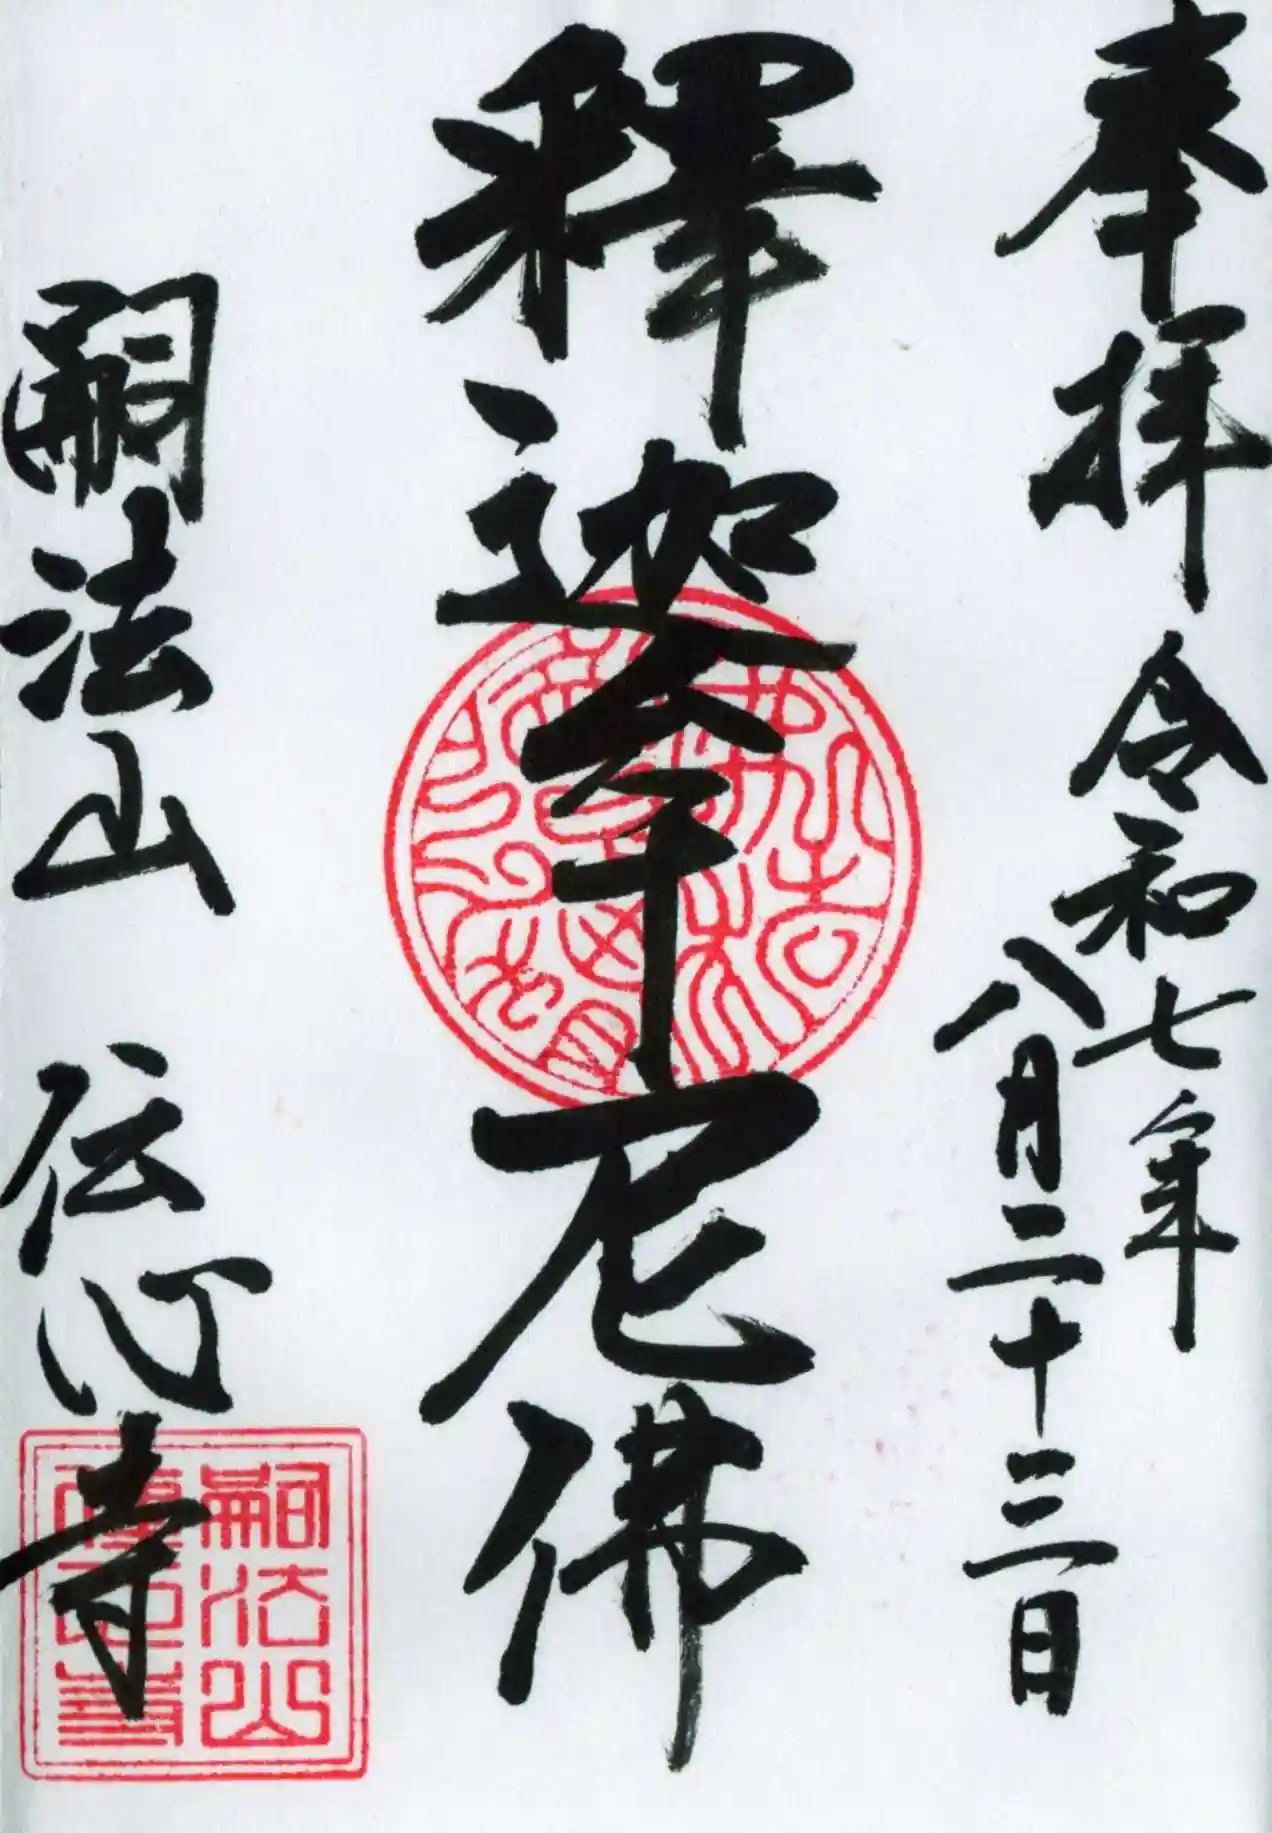 奉拝
令和七年
八月二十三日
釋迦牟尼佛
嗣法山 伝心寺
嗣法山
傳心寺